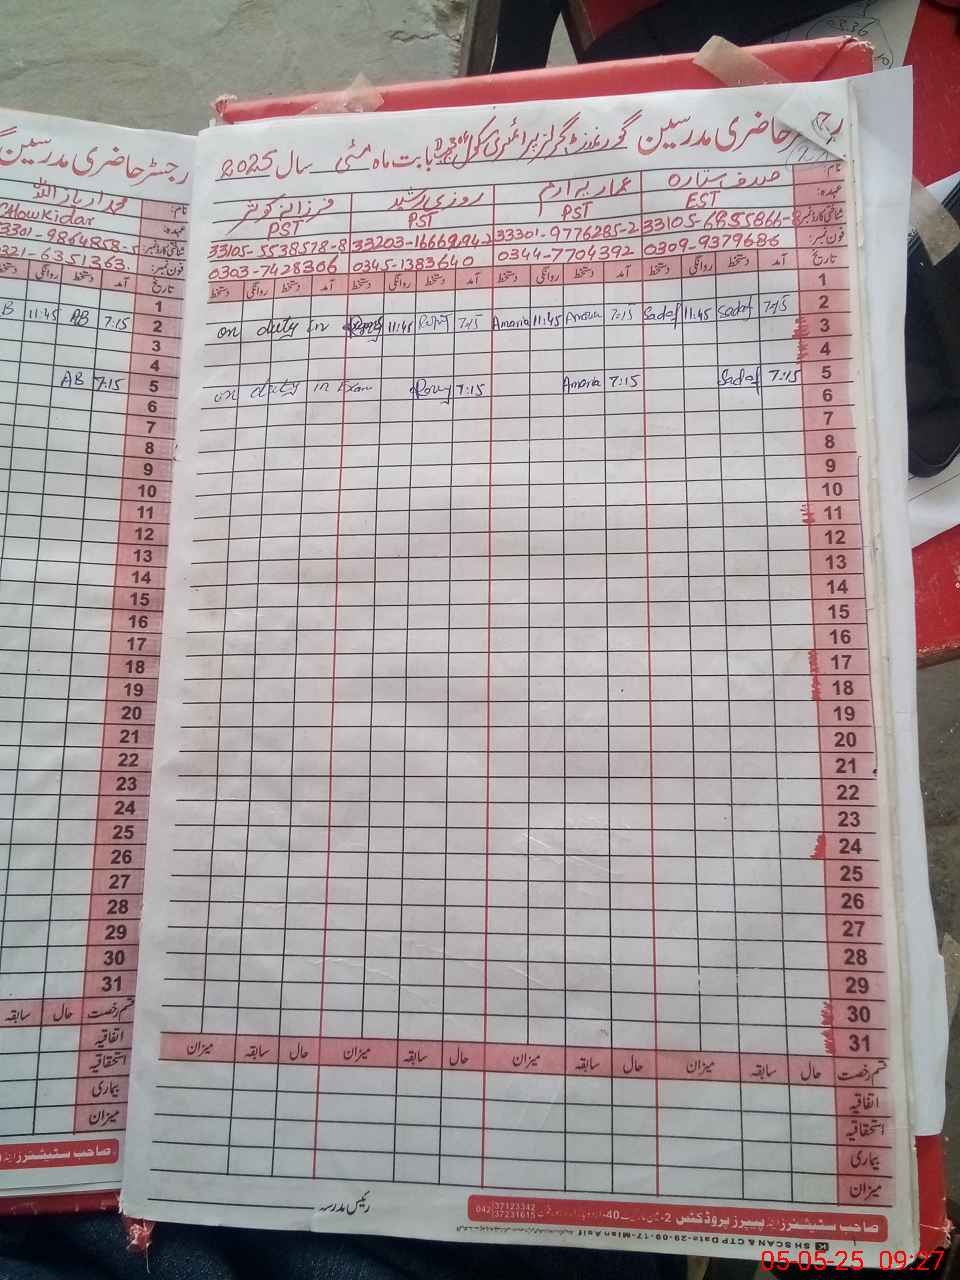 رجسٹر حاضری مدرسین گورنمنٹ گرلز پرائمری سکول بابت ماہ مئی سال 2025
رجسٹر حاضری مدرسین
نام:
صدف ستارہ
عماریہ ارم
روزی رشید
فرزانہ کوثر
عہدہ:
EST
PST
PST
PST
شناختی کارڈ نمبر:
33301-9776285-2
33105-5538578-8
فون نمبر:
0309-9379686
0344-7704392
0345-1383640
0303-7428306
تاریخ آمد دستخط روانگی دستخط آمد دستخط روانگی دستخط آمد دستخط روانگی دستخط آمد دستخط روانگی دستخط
1
2 7:15 Sadaf 11:45 Sadaf 7:15 Amaria 11:45 Amaria 7:15 11:45 on duty in
3
4
5 7:15 Sadaf 7:15 Amaria 7:15 on duty in Exam
6
7
8
9
10
11
12
13
14
15
16
17
18
19
20
21
22
23
24
25
26
27
28
29
30
31
قسم رخصت حال سابقہ میزان حال سابقہ میزان حال سابقہ میزان حال سابقہ میزان
اتفاقیہ
استحقاقیہ
بیماری
میزان
رئیس مدرسہ
صاحب سٹیشنرز اینڈ پیپرز پروڈکٹس
042 37123342
37231615
K SH SCAN & CTP Date-29-09-17-Mian Asif
نام:
عہدہ: Chowkidar
شناختی کارڈ نمبر: 33301-9864858-5
فون نمبر: 0321-6351363
تاریخ آمد دستخط روانگی دستخط
1
2 7:15 AB 11:45 B
3
4
5 7:15 AB
6
7
8
9
10
11
12
13
14
15
16
17
18
19
20
21
22
23
24
25
26
27
28
29
30
31
قسم رخصت حال سابقہ
اتفاقیہ
استحقاقیہ
بیماری
میزان
صاحب سٹیشنرز
05-05-25 09:27